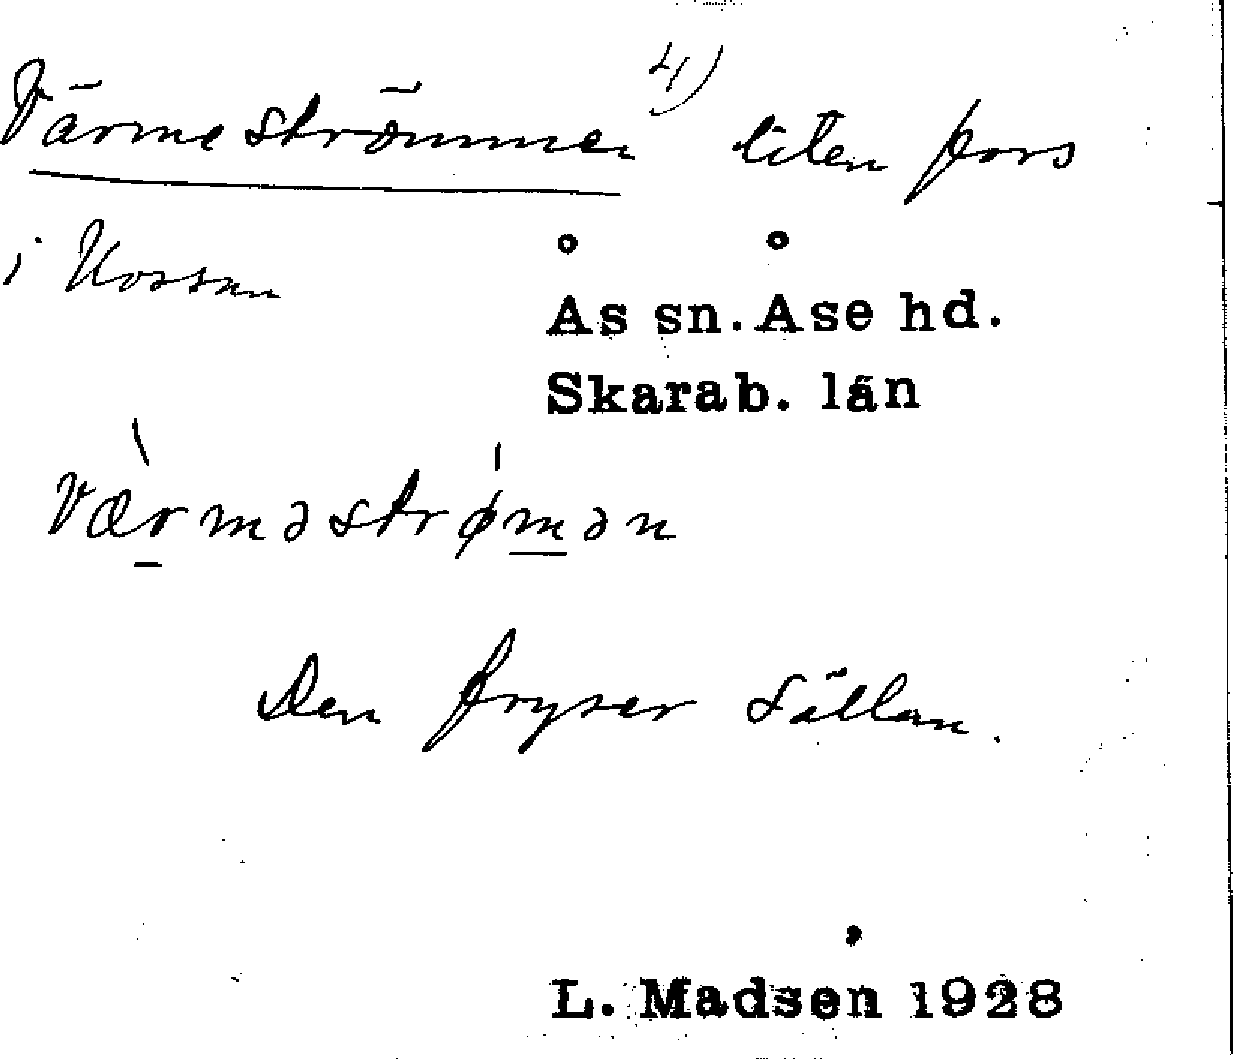 Värmeströmmen 4) liten fors
i Nossan
Ås sn. Åse hd.
Skarab. län
Værməstrømən
Den fryser sällan.
L. Madsen 1928